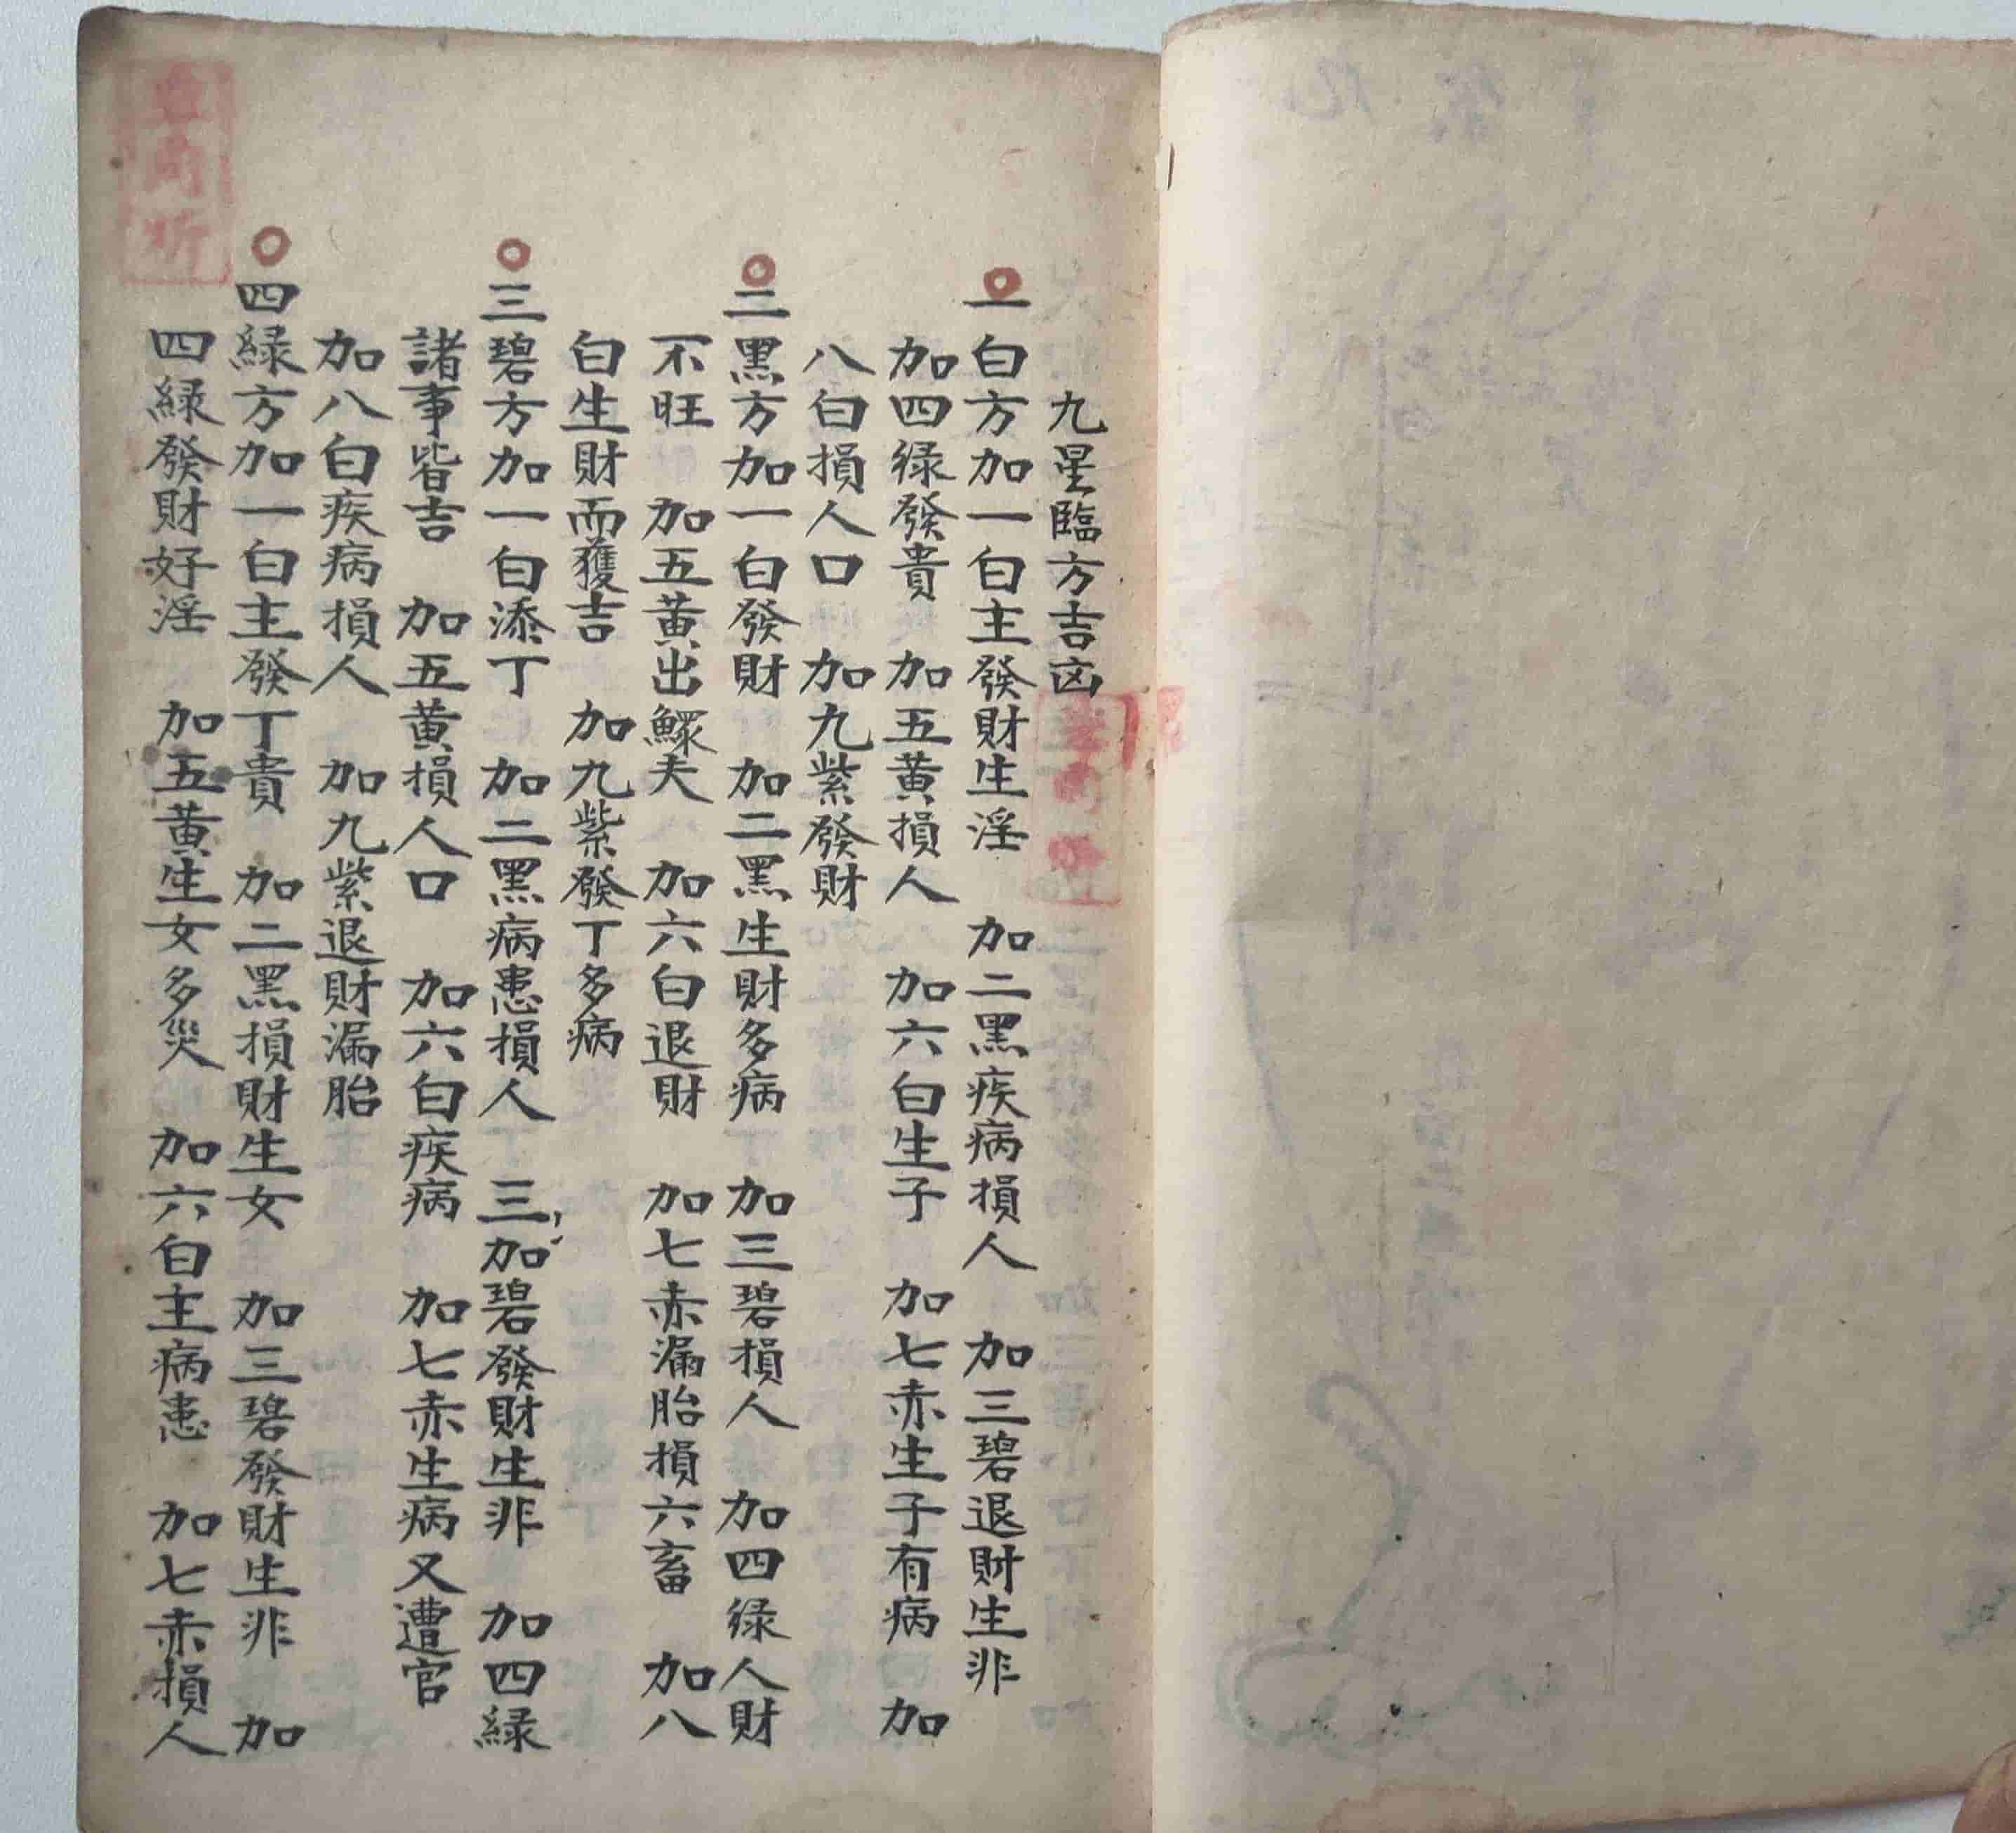 九星臨方吉凶
一白方加一白主發財生淫　加二黑疾病損人　加三碧退財生非
加四綠發貴　加五黃損人　加六白生子　加七赤生子有病　加
八白損人口　加九紫發財
二黑方加一白發財　加二黑生財多病　加三碧損人　加四綠人財
不旺　加五黃出鰥夫　加六白退財　加七赤漏胎損六畜　加八
白生財而獲吉　加九紫發丁多病
三碧方加一白添丁　加二黑病患損人　三加碧發財生非　加四綠
諸事皆吉　加五黃損人口　加六白疾病　加七赤生病又遭官
加八白疾病損人　加九紫退財漏胎
四綠方加一白主發丁貴　加二黑損財生女　加三碧發財生非　加
四綠發財好淫　加五黃生女多災　加六白主病患　加七赤損人